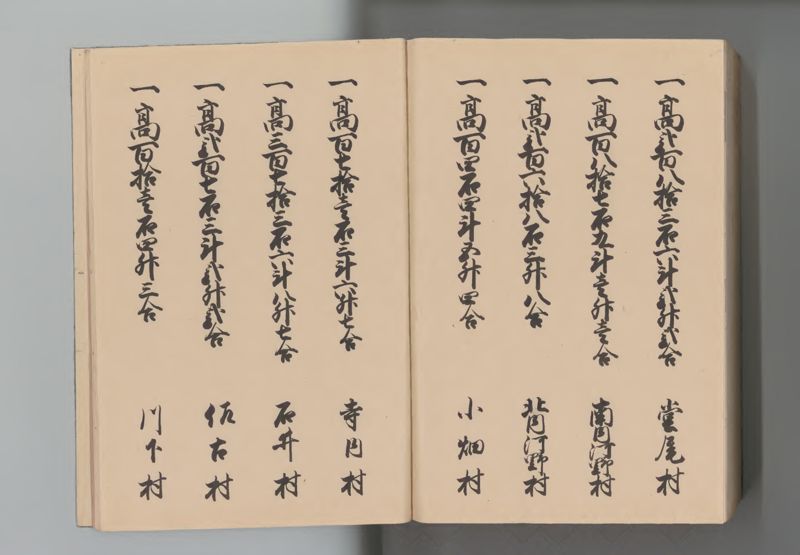 一高弐百八拾三石六斗弐升弐合 堂尾村
一高百八拾七石九斗壱升壱合 南河野村
一高弐百六拾八石三升八合 北河野村
一高百四石四斗五升四合 小畑村
一高百七拾壱石三斗六升七合 寺村
一高三百七拾三石六斗八升七合 石井村
一高弐百七石三斗弐升弐合 佐古村
一高百拾壱石四升三合 川下村